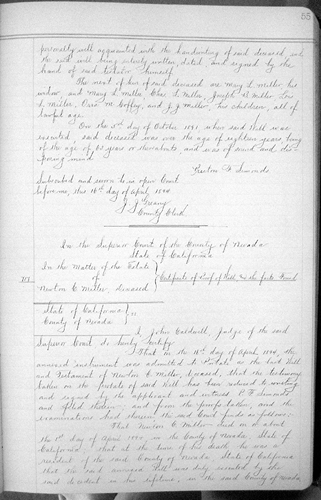 65
personally well acquainted with the handwriting of said deceased and
the said will being entirely written, dated and signed by the
hand of said testator himself.
The next of kin of said deceased are Mary L. Miller, his
widow, and Mary L. Miller, L. Miller, Joseph Miller,
L. Miller, M. Coffey, and J. J. Miller, his children, all of
lawful age.
On the 3rd day of October 1891 when said Will was
executed said deceased was over the age of eighteen years, being
of the age of 63 years or thereabouts and was of sound and dis-
posing mind
F. Simonds
Subscribed and sworn to in open Court
before me, this 16th day of April 1894
County Clerk
In the Superior Court of the County of Nevada
State of California
In the Matter of the Estate
of
Newton C. Miller, deceased
Certificate of Proof of Will and the facts Found
State of California
County of Nevada } ss
I, John Caldwell, Judge of the said
Superior Court do hereby Certify
That on the 16th day of April 1894, the
annexed instrument was admitted to Probate as the last Will
and Testament of Newton C. Miller, deceased, that the testimony
taken on the probate of said Will has been reduced to writing
and signed by the applicant and witness F. Simonds
and filed therein, and from the proofs taken, and the
examinations had therein the said Court finds as follows:
That Newton C. Miller died on or about
the 1st day of April 1894, in the County of Nevada, State of
California, that at the time of his death he was a
resident of the said County of Nevada, State of California
that the said annexed Will was duly executed by the
said decedent in his lifetime, in the said County of Nevada